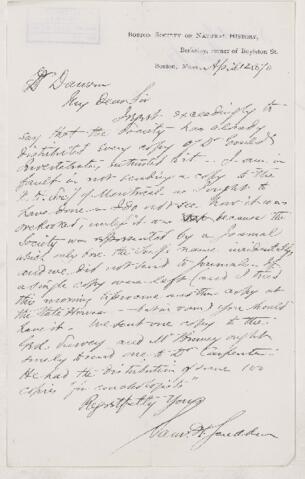 BOSTON SOCIETY OF NATURAL HISTORY,
Berkeley, corner of Boylston St.
Boston, Mass., April 12 1870
Dr Dawson
My Dear Sir
I regret exceedingly to
say that the Society has already
distributed every copy of Dr Gould's
Invertebrata, entrusted to it. I am in
fault in not sending a copy to the
N. H. Soc. of Montreal as I ought to
have done & I do not see how it was
overlooked, unless it was because the
Society was represented by a Journal
which only bore the Soc's name incidentally,
and we did not send to Journals. If
a single copy were left (and I tried
this morning to procure another copy at
the State House in vain) you should
have it. We sent one copy to the
Geol. Survey and Mr Binney ought
surely to send one to Dr Carpenter.
He had the distribution of some 100
copies "for conchologists"
Respectfully Yours
Sam. H. Scudder